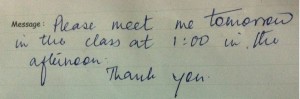 Message: Please meet me tomorrow
in the class at 1:00 in the
afternoon.
Thank you.